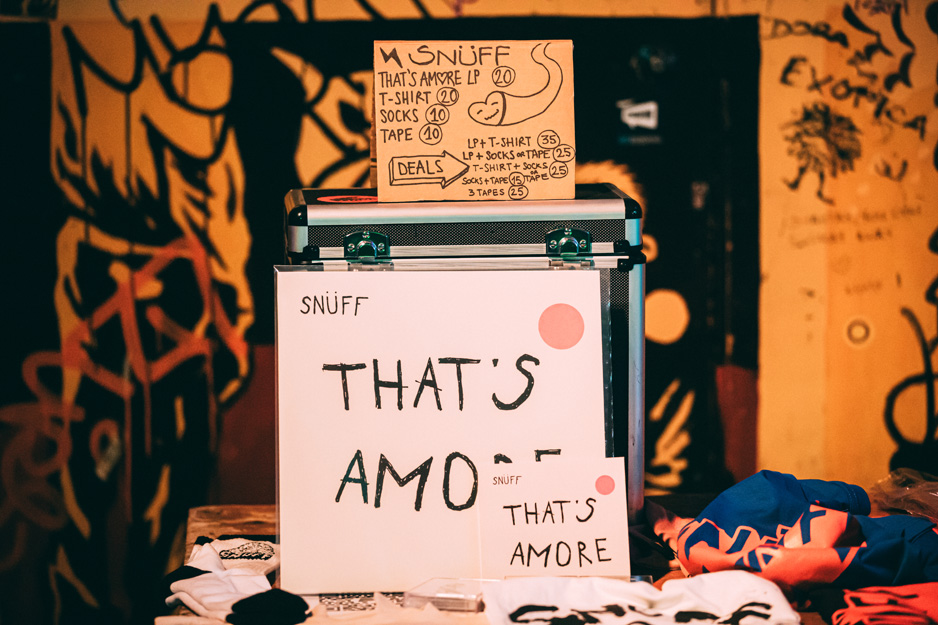 SNÜFF
THAT'S AMORE LP 20
T-SHIRT 20
SOCKS 10
TAPE 10
DEALS
LP + T-SHIRT 35
LP + SOCKS OR TAPE 25
T-SHIRT + SOCKS OR TAPE 25
SOCKS + TAPE 15
3 TAPES 25
SNÜFF
THAT'S
AMO
SNÜFF
THAT'S
AMORE
EXOTICA